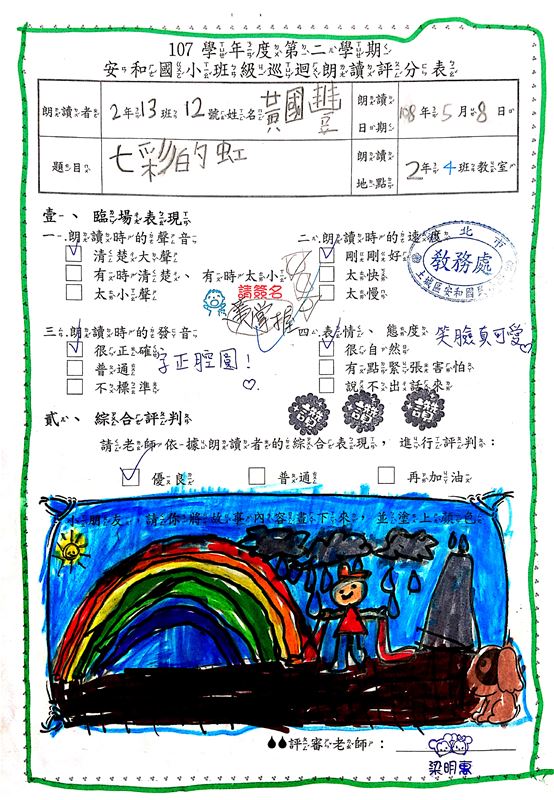 107 學年度第二學期
安和國小班級巡迴朗讀評分表
朗讀者 2年13班12號姓名黃國 朗讀日期 108年5月8日
題目 七彩的虹 朗讀地點 2年4班教室
壹、臨場表現
一、朗讀時的聲音 二、朗讀時的速度
清楚大聲 剛剛好
有時清楚、有時太小 太快
太小聲 太慢
請簽名
教務處
三、朗讀時的發音 四、表情、態度 笑臉真可愛
很正確 很自然
字正腔圓!
普通 有點緊張害怕
不標準 說不出話來
貳、綜合評判
請老師依據朗讀者的綜合表現,進行評判:
優良 普通 再加油
小朋友,請你將故事內容畫下來,並塗上顏色
評審老師:
梁明惠